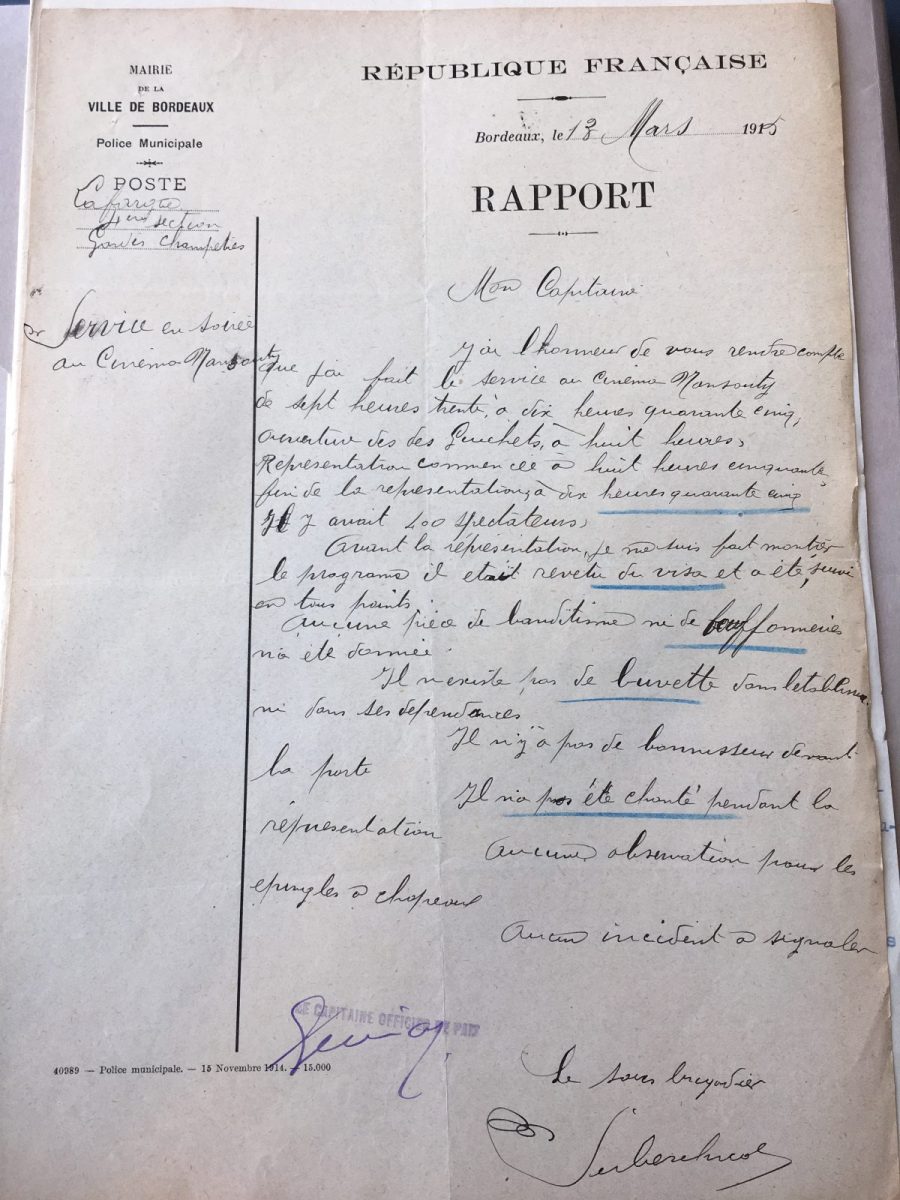 MAIRIE
DE LA
VILLE DE BORDEAUX
Police Municipale
POSTE
Lafargue
4eme section
Gardes Champetres
Service en soirée
au Cinéma Mansouty
RÉPUBLIQUE FRANÇAISE
Bordeaux, le 13 Mars 1915
RAPPORT
Mon Capitaine
J'ai l'honneur de vous rendre compte
que j'ai fait le service au cinéma Mansouty
de sept heures trente, à dix heures quarante cinq,
ouverture des des Guichets, à huit heures,
Representation commencée à huit heures cinquante,
fin de la representation, à dix heures quarante cinq
Il y avait 400 spectateurs,
Avant la réprésentation, je me suis fait montrer
le programe il etait revetu du visa et a été suivi
en tous points.
Aucune pièce de banditisme ni de bouffonneries
n'a été donnée.
Il n'existe pas de buvette dans
ni dans ses dependances
Il n'y a pas de bonnisseur devant
la porte
Il n'a pas été chanté pendant la
réprésentation
Aucune observation pour les
epingles à chapeaux
Aucun incident a signaler
LE CAPITAINE OFFICIER DE PAIX
Le sous brigadier
40989 — Police municipale. — 15 Novembre 1914. — 15.000